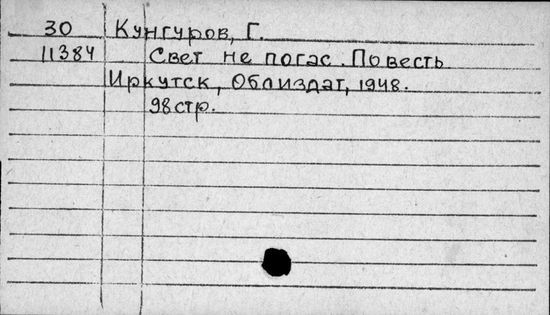 30 Кунгуров, Г.
11384 Свет не погас. Повесть
Иркутск, Облиздат, 1948.
98стр.